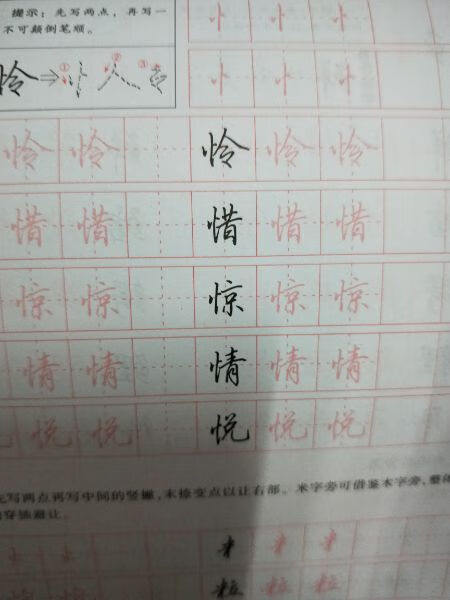 提示：先写两点，再写一
不可颠倒笔顺。
怜⇒①②③
忄忄忄
忄忄忄
怜怜怜怜怜
惜惜惜惜惜
惊惊惊惊惊
情情情情情
悦悦悦悦悦
先写两点再写中间的竖撇，末捺变点以让右部。米字旁可借鉴木字旁，整体
穿插避让。
粒粒粒